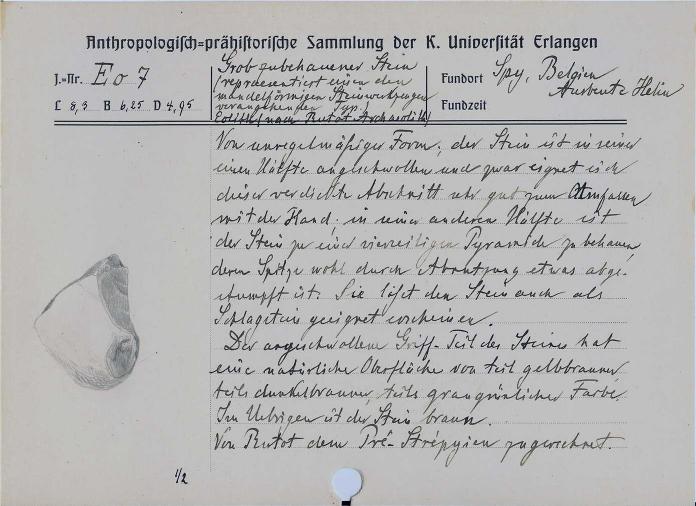 Anthropologisch=prähistorische Sammlung der K. Universität Erlangen
J.=Nr. Eo 7
L 8,3 B 6,25 D 4,95
Grob zubehauener Stein
(repräsentiert einen den
mandelförmigen Steinwerkzeugen
vorangehenden Typ.)
Eolith (nach Rutot Archaeolith)
Fundort Spy, Belgien
Fundzeit
Von unregelmäßiger Form; der Stein ist in seiner
einen Hälfte angeschwollen und zwar eignet sich
dieser verdickte Abschnitt sehr gut zum Umfassen
mit der Hand; in seiner anderen Hälfte ist
der Stein zu einer vierseitigen Pyramide zu behauen,
deren Spitze wohl durch Abnutzung etwas abge-
stumpft ist. Sie läßt den Stein auch als
Schlagstein geeignet erscheinen.
Der angeschwollene Griff-Teil des Steines hat
eine natürliche Oberfläche von teils gelbbrauner
teils dunkelbrauner, teils graugrünlicher Farbe.
Im Uebrigen ist der Stein braun.
Von Rutot dem Pré-Strépyien zugerechnet.
1/2